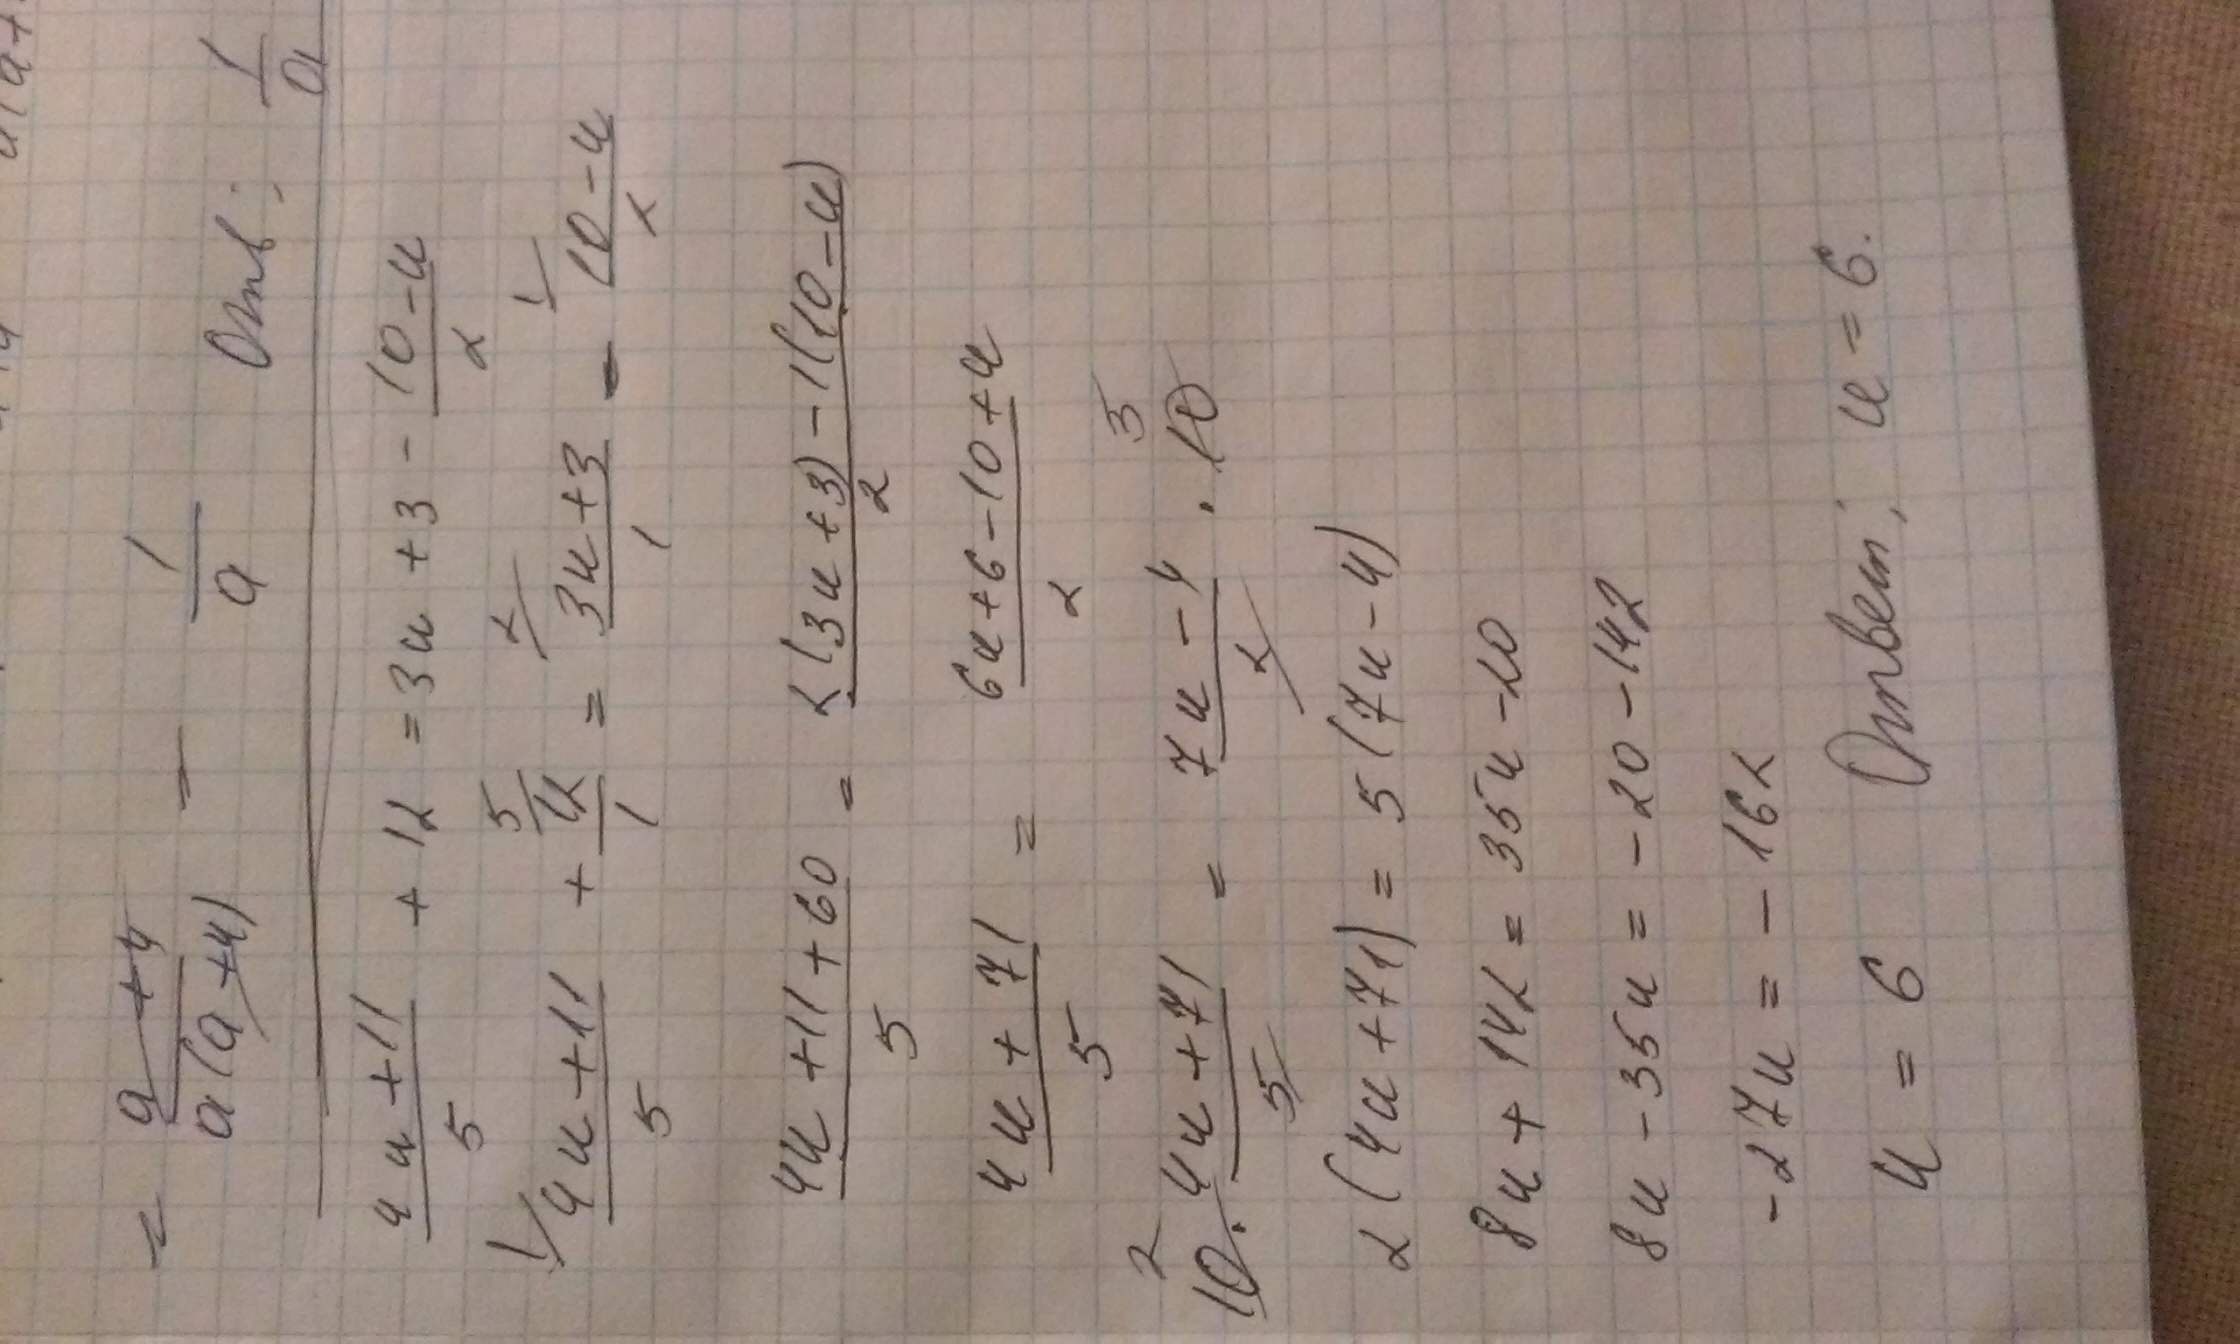 = (a+4)/(a(a+4)) = 1/a Отв: 1/a
(4u+11)/5 + 12 = 3u+3 - (10-u)/2
1/ (4u+11)/5 + 5/ 12/1 = 2/ (3u+3)/1 - 1/ (10-u)/2
(4u+11+60)/5 = (2(3u+3)-1(10-u))/2
(4u+71)/5 = (6u+6-10+u)/2
2 10·(4u+71)/5 = (7u-4)/2 · 10 5
2(4u+71) = 5(7u-4)
8u+142 = 35u-20
8u-35u = -20-142
-27u = -162
u = 6 Ответ: u=6.